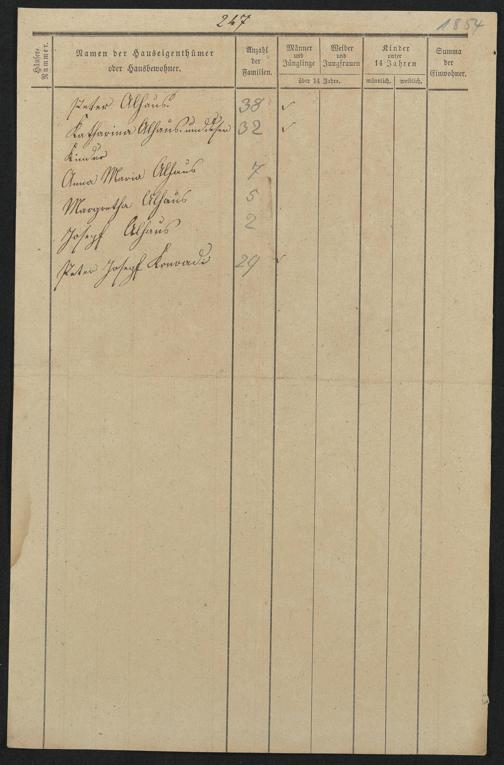 247
1854
Häuser-Nummer.
Namen der Hauseigenthümer
oder Hausbewohner.
Anzahl
der
Familien.
Männer
und
Jünglinge
Weiber
und
Jungfrauen
über 14 Jahre.
Kinder
unter
14 Jahren
männlich.
weiblich.
Summa
der
Einwohner.
Peter Alhaus 38 ✓
Katharina Alhaus und dessen 32 ✓
Kinder
Anna Maria Alhaus 7
Margretha Alhaus 5
Josepf Alhaus 2
Peter Josepf Konradi 29 ✓